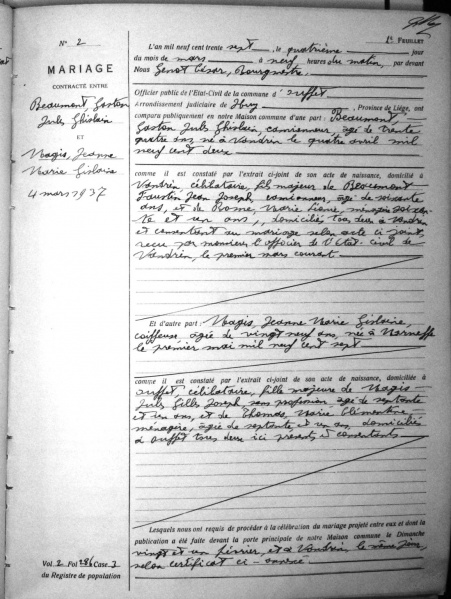 1er FEUILLET
N° 2
MARIAGE
CONTRACTÉ ENTRE
Beaumont, Gaston
Jules Ghislain
ET
Magis, Jeanne
Marie Ghislaine
4 mars 1937
L'an mil neuf cent trente sept, le quatrième jour
du mois de mars à neuf heures du matin, par devant
Nous Genot César, Bourgmestre,
Officier public de l'Etat-Civil de la commune d'Ouffet
Arrondissement judiciaire de Huy, Province de Liége, ont
comparu publiquement en notre Maison commune d'une part : Beaumont,
Gaston Jules Ghislain, camionneur, âgé de trente
quatre ans, né à Vandrin le quatre avril mil
neuf cent deux
comme il est constaté par l'extrait ci-joint de son acte de naissance, domicilié à
Vandrin célibataire, fils majeur de Beaumont
Faustin Jean Joseph camionneur, âgé de soixante
ans, et de Marie ménagère soixan-
te et un ans, domiciliés tous deux à Vandrin
et consentant au mariage selon acte ci joint,
reçu par monsieur l'officier de l'Etat-civil de
Vandrin, le premier mars courant.
Et d'autre part : Magis, Jeanne Marie Gislaine,
coiffeuse, âgée de vingt neuf ans née à Warneffe
le premier mai mil neuf cent sept
comme il est constaté par l'extrait ci-joint de son acte de naissance, domiciliée à
Ouffet, célibataire, fille majeure de Magis
Jules Gilles Joseph sans profession âgé de septante
et un ans, et de Thomas, Marie Clémentine
ménagère, âgée de septante et un ans, domiciliés
à Ouffet tous deux ici présents et consentants
Lesquels nous ont requis de procéder à la célébration du mariage projeté entre eux et dont la
publication a été faite devant la porte principale de notre Maison commune le Dimanche
vingt et un février, et à Vandrin, le même jour,
selon certificat ci-annexé
Vol. 2 Fol 286 Case 3
du Registre de population